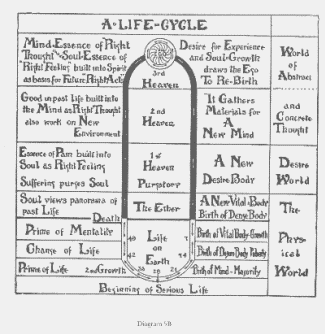 A·LIFE-CYCLE
Mind-Essence of Right
Thought Soul-Essence of
Right Feeling built into Spirit
as basis for Future Right Action
3rd
Heaven
Desire for Experience
and Soul-Growth
draws the Ego
To Re-Birth
World
of
Abstract
Good in past Life built into
the Mind as Right Thought
also work on New
Environment
2nd
Heaven
It Gathers
Materials for
A
New Mind
and
Concrete
Thought
Essence of Pain built into
Soul as Right Feeling
Suffering purges Soul
1st
Heaven
Purgatory
A New
Desire Body
Desire
World
Soul views panorama of
past Life
Death
The Ether
A New Vital Body
Birth of Dense Body
The
Phys-
ical
World
Prime of Mentality
49
Life
on
Earth
Birth of Vital Body-Growth
7
Change of Life
42
Birth of Desire Body Puberty
14
Prime of Life
2nd Growth
28
21
Birth of Mind - Majority
Beginning of Serious Life
Diagram 5B